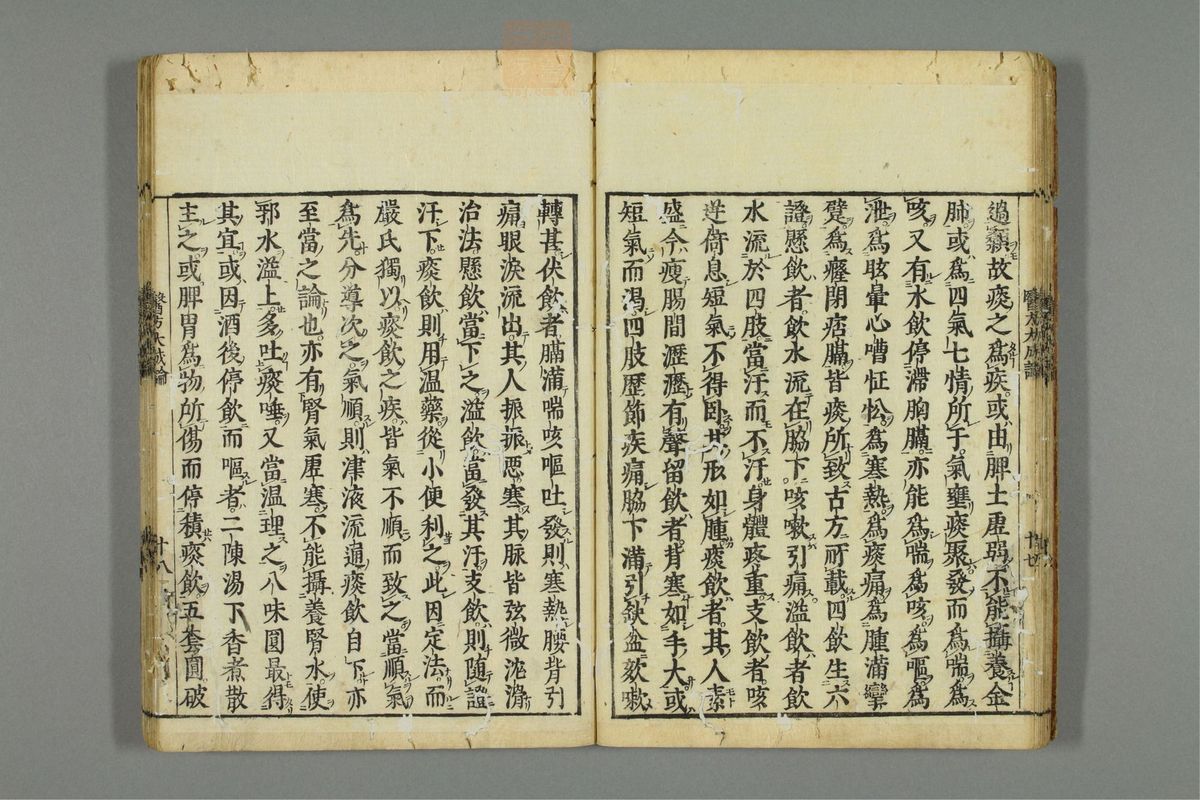 過顙故痰之為疾或由脾土虛弱不能攝養金
肺或為四氣七情所于氣壅痰聚發而為喘為
咳又有水飲停滯胸膈亦能為喘為咳為嘔為
泄為眩暈心嘈怔忪為寒熱為疼痛為腫滿攣
躄為癃閉痞膈皆痰所致古方所載四飲生六
證懸飲者飲水流在脇下咳嗽引痛溢飲者飲
水流於四肢當汗而不汗身體疼重支飲者咳
逆倚息短氣不得卧其形如腫痰飲者其人素
盛今瘦腸間瀝瀝有聲留飲者背寒如手大或
短氣而渴四肢歷節疾痛脇下滿引缺盆欬嗽
轉甚伏飲者膈滿喘咳嘔吐發則寒熱腰背引
痛眼淚流出其人振振惡寒其脉皆弦微沈滑
治法懸飲當下之溢飲當發其汗支飲則随證
汗下痰飲則用温藥從小便利之此因定法而
嚴氏獨以痰飲之疾皆氣不順而致之當順氣
為先分導次之氣順則津液流通痰飲自下亦
至當之論也亦有腎氣虛寒不能攝養腎水使
邪水溢上多吐痰唾又當温理之八味圓最得
其宜或因酒後停飲而嘔者二陳湯下香煮散
主之或脾胃為物所傷而停積痰飲五套圓破
十八